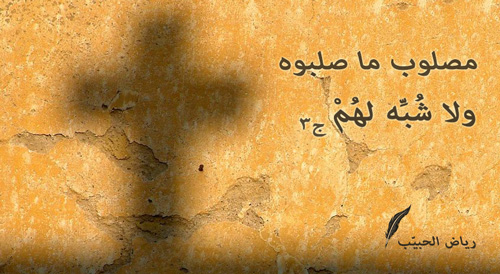 مصلوب ما صلبوه
ولا شُبِّه لهُمْ ج٣
رياض الحبيّب